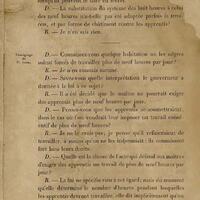 D. — La substitution du système des huit heures à celui
des neuf heures n'a-t-elle pas été adoptée parfois à
et par forme de châtiment contre les apprentis?
R. — Je n'en sais rien.
Témoignage
de
D. — Connaissez-vous quelque habitation où les nègres
soient forcés de travailler plus de neuf heures par jour?
R. — Je n'en connais aucune.
D. — Savez-vous quelle interprétation le gouverneur a
donnée à la loi à ce sujet?
R. — Il a été décidé que le maître ne pourrait exiger
des apprentis plus de neuf heures par jour.
D. — Pensez-vous que les apprentis se soumettraient
dans le cas où l'on voudrait leur imposer un travail consé-
cutif de plus de neuf heures?
R. — Je ne le crois pas; je pense qu'ils refuseraient de
travailler, à moins qu'on ne les indemnisât: ils connaissent
fort bien leurs droits.
D. — Quelle est la clause de l'acte qui défend aux maîtres
d'exiger des apprentis un travail de plus de neuf heures par
jour?
R. — La loi ne spécifie rien à cet égard; mais au moment
qu'elle détermine le nombre d'heures pendant lesquelles
les apprentis devront travailler, elle dit implicitement qu'on